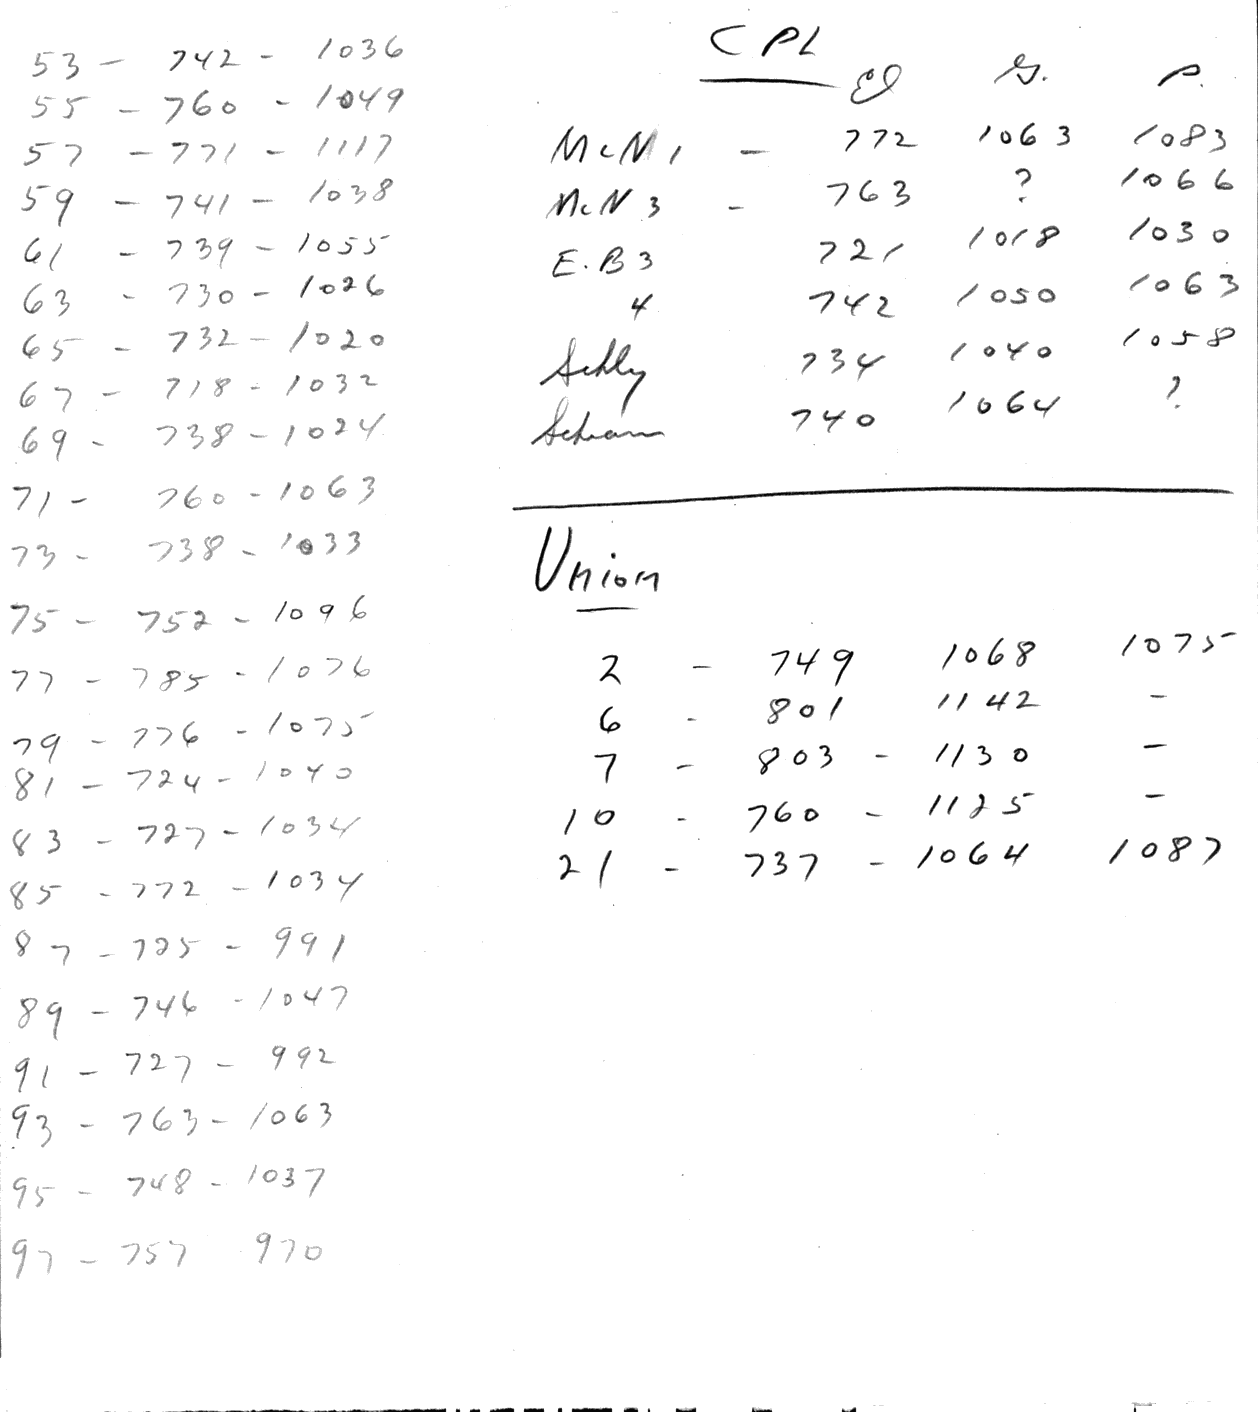 53 - 742 - 1036
55 - 760 - 1049
57 - 771 - 1117
59 - 741 - 1038
61 - 739 - 1055
63 - 730 - 1026
65 - 732 - 1020
67 - 718 - 1032
69 - 738 - 1024
71 - 760 - 1063
73 - 738 - 1033
75 - 752 - 1096
77 - 785 - 1076
79 - 776 - 1075
81 - 724 - 1040
83 - 727 - 1034
85 - 772 - 1034
87 - 725 - 991
89 - 746 - 1047
91 - 727 - 992
93 - 763 - 1063
95 - 748 - 1037
97 - 757 970
CPL
El G. P.
McN 1 - 772 1063 1083
McN 3 - 763 ? 1066
E.B 3 721 1018 1030
4 742 1050 1063
Schly 734 1040 1058
Schramm 740 1064 ?
Union
2 - 749 1068 1075
6 - 801 1142 -
7 - 803 - 1130 -
10 - 760 - 1125 -
21 - 737 - 1064 1087